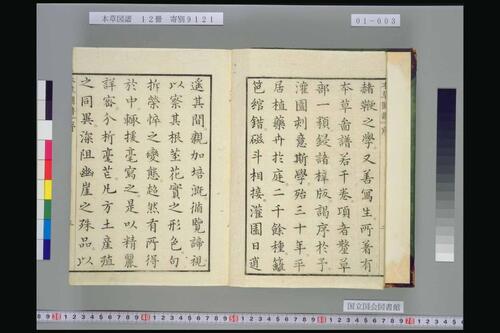 本草図譜 12冊 寄別9121
01-003
赭鞭之學又善寫生所著有
本草啚譜若干卷頃者草
部一類鋟諸梓版謁序於予
灌園刺意斯學殆三十年平
居植藥卉於庭二千餘種籬
笆綰錯磁斗相接灌園日逍
遙其間親加培漑循覽諦視
以察其根莖花實之形色句
拆榮悴之變態超然有所得
於中輒援毫寫之是以精麗
詳審分析毫芒凡方土產殖
之同異深阻幽崖之殊品以
国立国会図書館